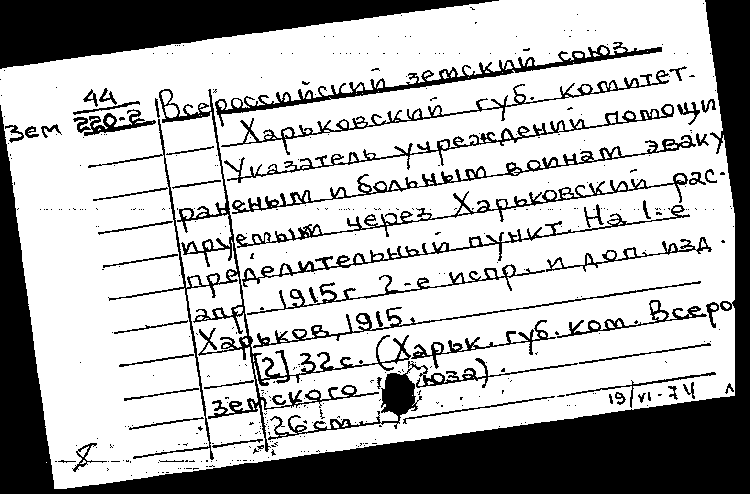 44
Зем 220-2 Всероссийский земский союз.
Харьковский губ. комитет.
Указатель учреждений помощи
раненым и больным воинам эваку
ируемым через Харьковский рас-
пределительный пункт. На 1-е
апр. 1915 г 2-е испр. и доп. изд.
Харьков, 1915.
[2], 32 с. (Харьк. губ. ком. Всеро
земского юза).
26 cm.
19/VI-74